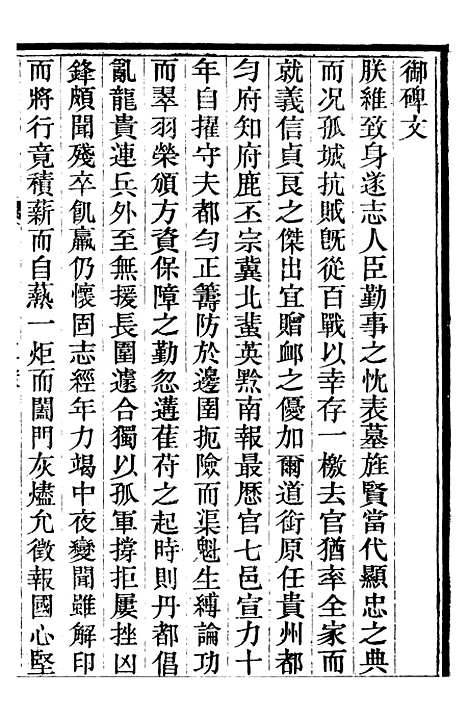 御碑文
朕維致身遂志人臣勤事之忱表墓旌賢當代顯忠之典
而况孤城抗賊旣從百戰以幸存一檄去官猶率全家而
就義信貞良之傑出宜贈卹之優加爾道銜原任貴州都
勻府知府鹿丕宗冀北蜚英黔南報最歷官七邑宣力十
年自擢守夫都勻正籌防於邊圉扼險而渠魁生縛論功
而翠羽榮頒方資保障之勤忽遘萑苻之起時則丹都倡
亂龍貴連兵外至無援長圍遽合獨以孤軍撐拒屢挫凶
鋒頗聞殘卒飢羸仍懷固志經年力竭中夜變聞雖解印
而將行竟積薪而自爇一炬而闔門灰燼允徵報國心堅